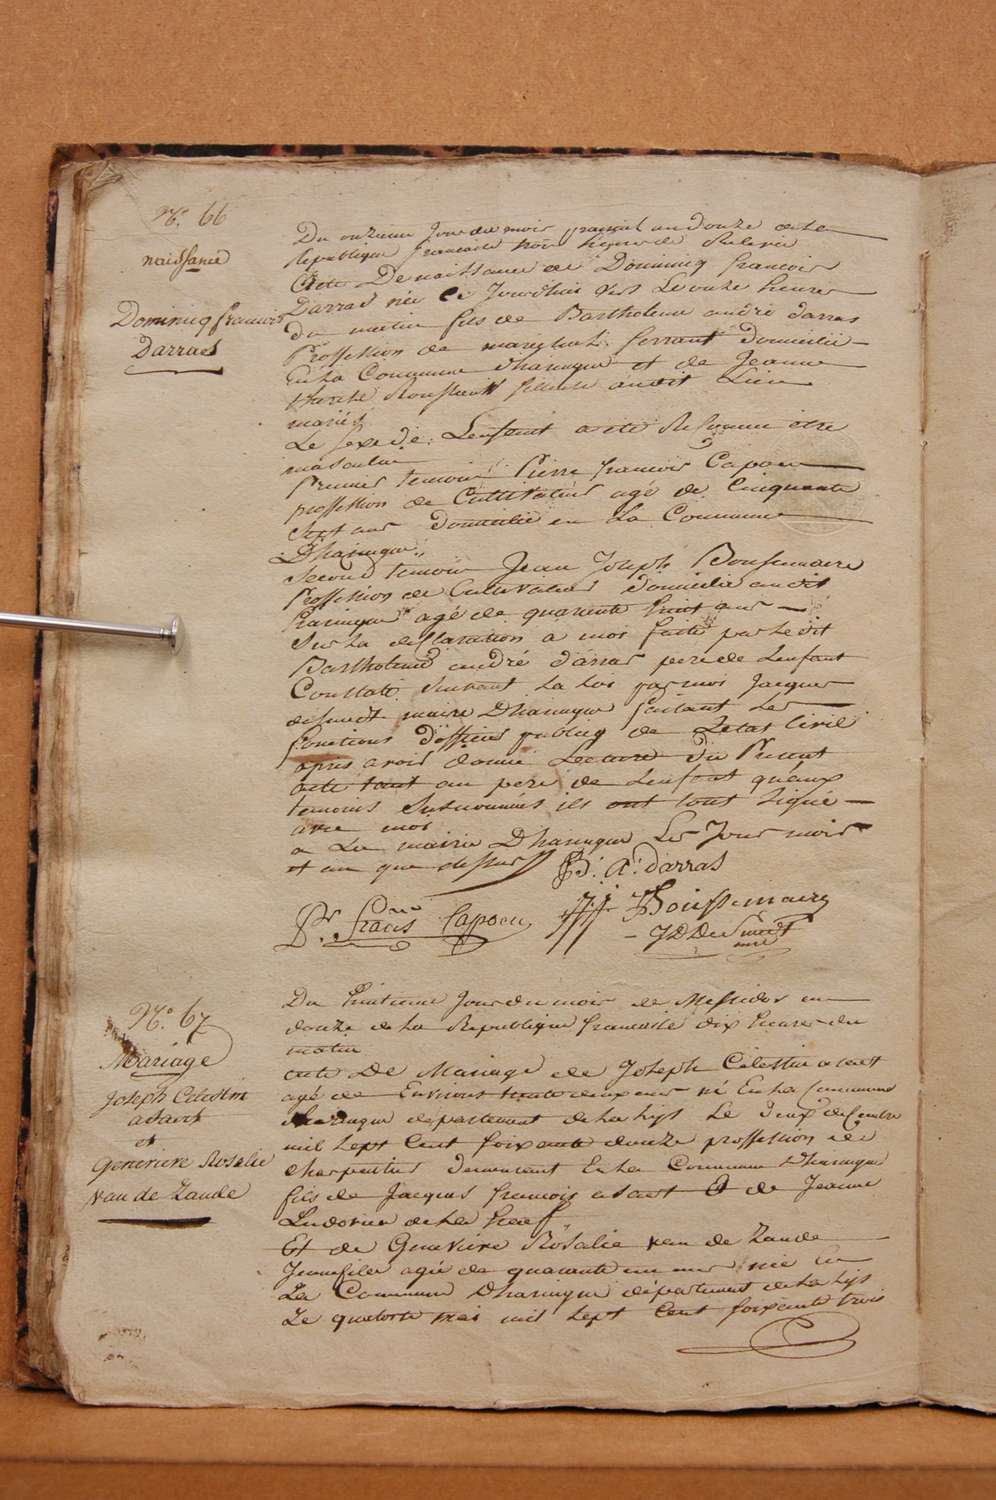 N.° 66
naissance
Dominicq francois
Darras
Du onzieme Jour du mois prairial an douze de la
Republique francaise trois heures de Relevée
Acte De naissance de Dominicq francois
Darras née Ce Jourdhui vers Le onze heures
du matin fils de Bartholemé andré darras
Profession de marechal ferrant domicilié
En La Commune Dharingue et de Jeanne
audit Lieu
mariés
Le sexe de Lenfant a eté Reconnu être
masculin
Premier temoin Pierre francois Capoen
profession de Cultivateur agé de Cinquante
Sept ans domicilié en La Commune
Dharingue
Second temoin Jean Joseph Bousemaere
Profession de Cultivateur domicilié audit
haringue agé de quarente huit ans
Sur La declaration a moi faite par Ledit
Bartholemé andré darras pere de Lenfant
Constaté Suivant La Loi par moi Jacques
desmedt maire Dharingue faisant Les
fonctions dofficier publicq de Letat Civil
apres avoir donné Lecture du Present
acte tant au pere de Lenfant quaux
temoins Susnommés ils ont tout Signé
avec moi
a La mairie Dharingue Les Jour mois
et an que dessus
B: A: darras
Pr. Francis Capoen
JJ Boussemaere
JD DeSmedt
mre
N.° 67
Mariage
Joseph Celestin
et
Genevieve Rosalie
van de Zande
Du huitieme Jour du mois de Messidor an
douze de La Republique francaise dix heures du
matin
acte De Mariage de Joseph Celestin
agé de Environs trente deux ans né En La Commune
Dharingue departement de La Lys Le deux decembre
mil Sept Cent soixante douze profession de
Charpentier demeurant En La Commune Dharingue
fils de Jacques francois et de Jeanne
Et de Genevieve Rosalie van de Zande
Jeunefille agée de quarante un ans née En
La Commune Dharingue département de La Lys
Le quatorze mai mil Sept Cent soixante trois